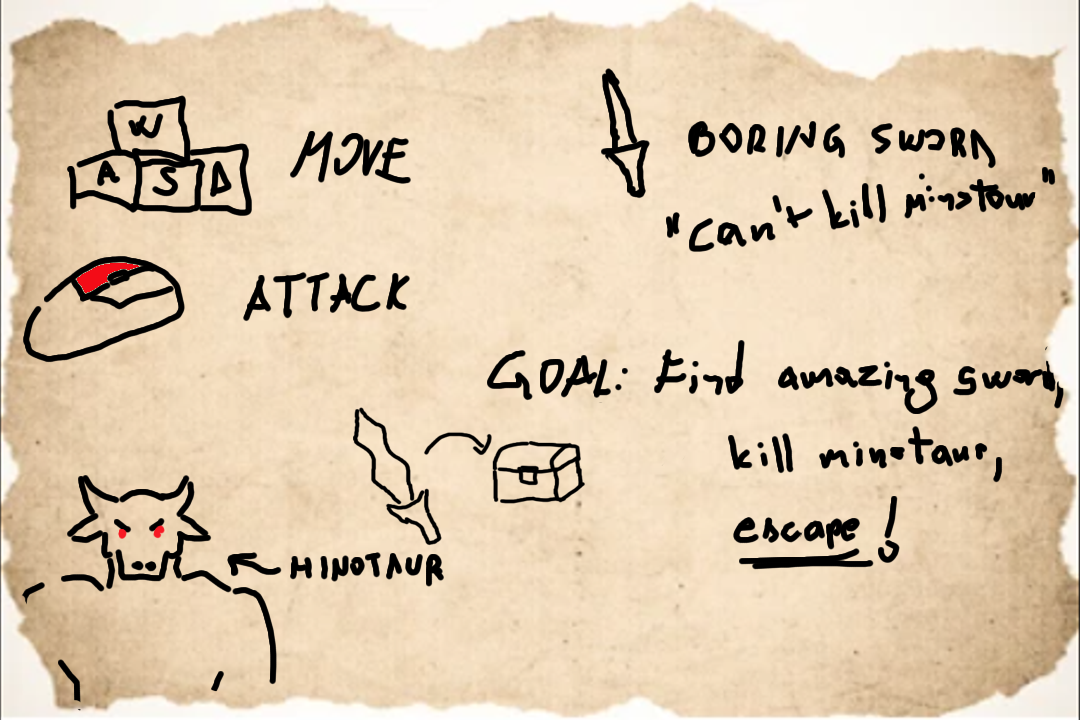 W
A S D
MOVE
ATTACK
BORING SWORD
"can't kill minotaur"
GOAL: Find amazing sword,
kill minotaur,
escape!
MINOTAUR